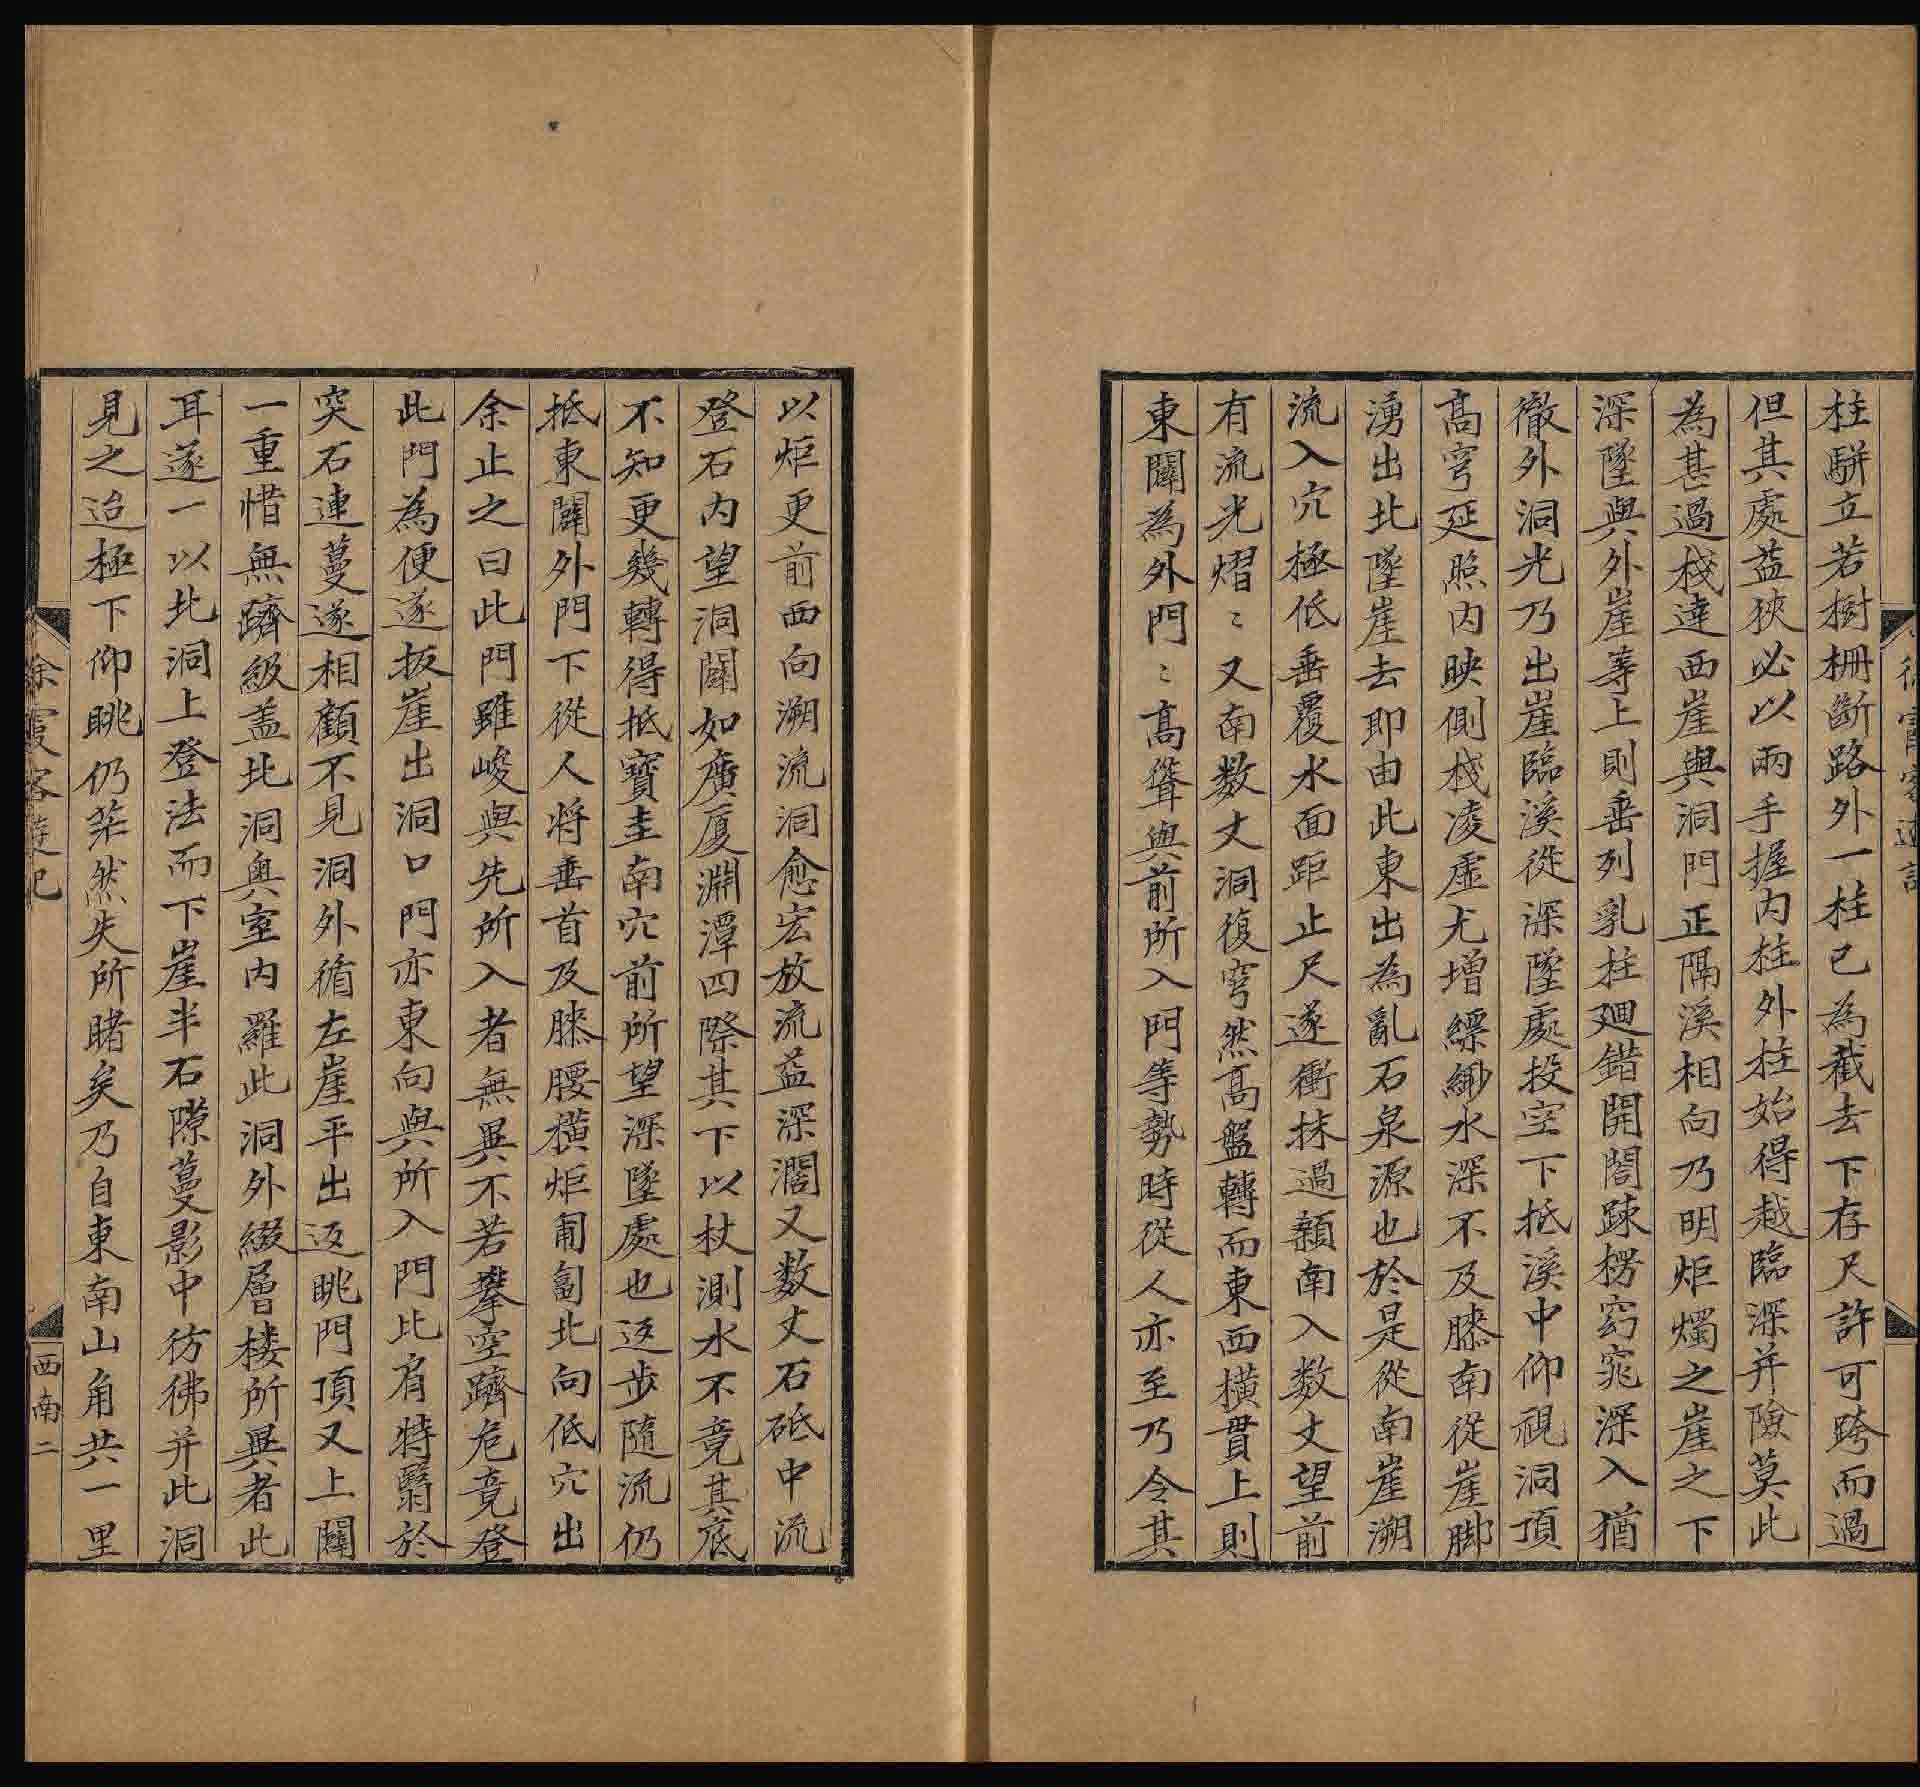 柱駢立若樹柵斷路外一柱已為截去下存尺許可跨而過
但其處益狹必以兩手握內柱外柱始得越臨深并險莫此
為甚過棧達西崖與洞門正隔溪相向乃明炬燭之崖之下
深墜與外崖等上則垂列乳柱廻錯開閤踈楞窈窕深入猶
徹外洞光乃出崖臨溪從深墜處投空下抵溪中仰視洞頂
高穹延照內映側棧凌虛尤增縹緲水深不及膝南從崖脚
湧出北墜崖去即由此東出為亂石泉源也於是從南崖溯
流入穴極低垂覆水面距止尺遂衝抹過顙南入数丈望前
有流光熠〻又南数丈洞復穹然高盤轉而東西橫貫上則
東闢為外門〻高聳與前所入門等勢時從人亦至乃令其
以炬更前西向溯流洞愈宏放流益深濶又数丈石砥中流
登石內望洞闢如廣廈淵潭四際其下以杖測水不竟其底
不知更幾轉得抵寶圭南穴前所望深墜處也返步隨流仍
抵東闢外門下從人將垂首及膝腰橫炬匍匐北向低穴出
余止之曰此門雖峻與先所入者無異不若攀空躋危竟登
此門為便遂扳崖出洞口門亦東向與所入門比肩特翳於
突石連蔓遂相顧不見洞外循左崖平出返眺門頂又上闢
一重惜無躋級盖北洞奧室內羅此洞外綴層楼所異者此
耳遂一以北洞上登法而下崖半石隙蔓影中彷彿并此洞
見之迨極下仰眺仍茫然失所睹矣乃自東南山角共一里
徐霞客遊記
西南二